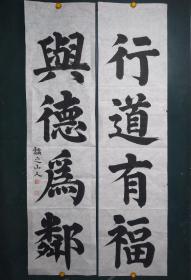 行道有福
與德爲鄰
之山人